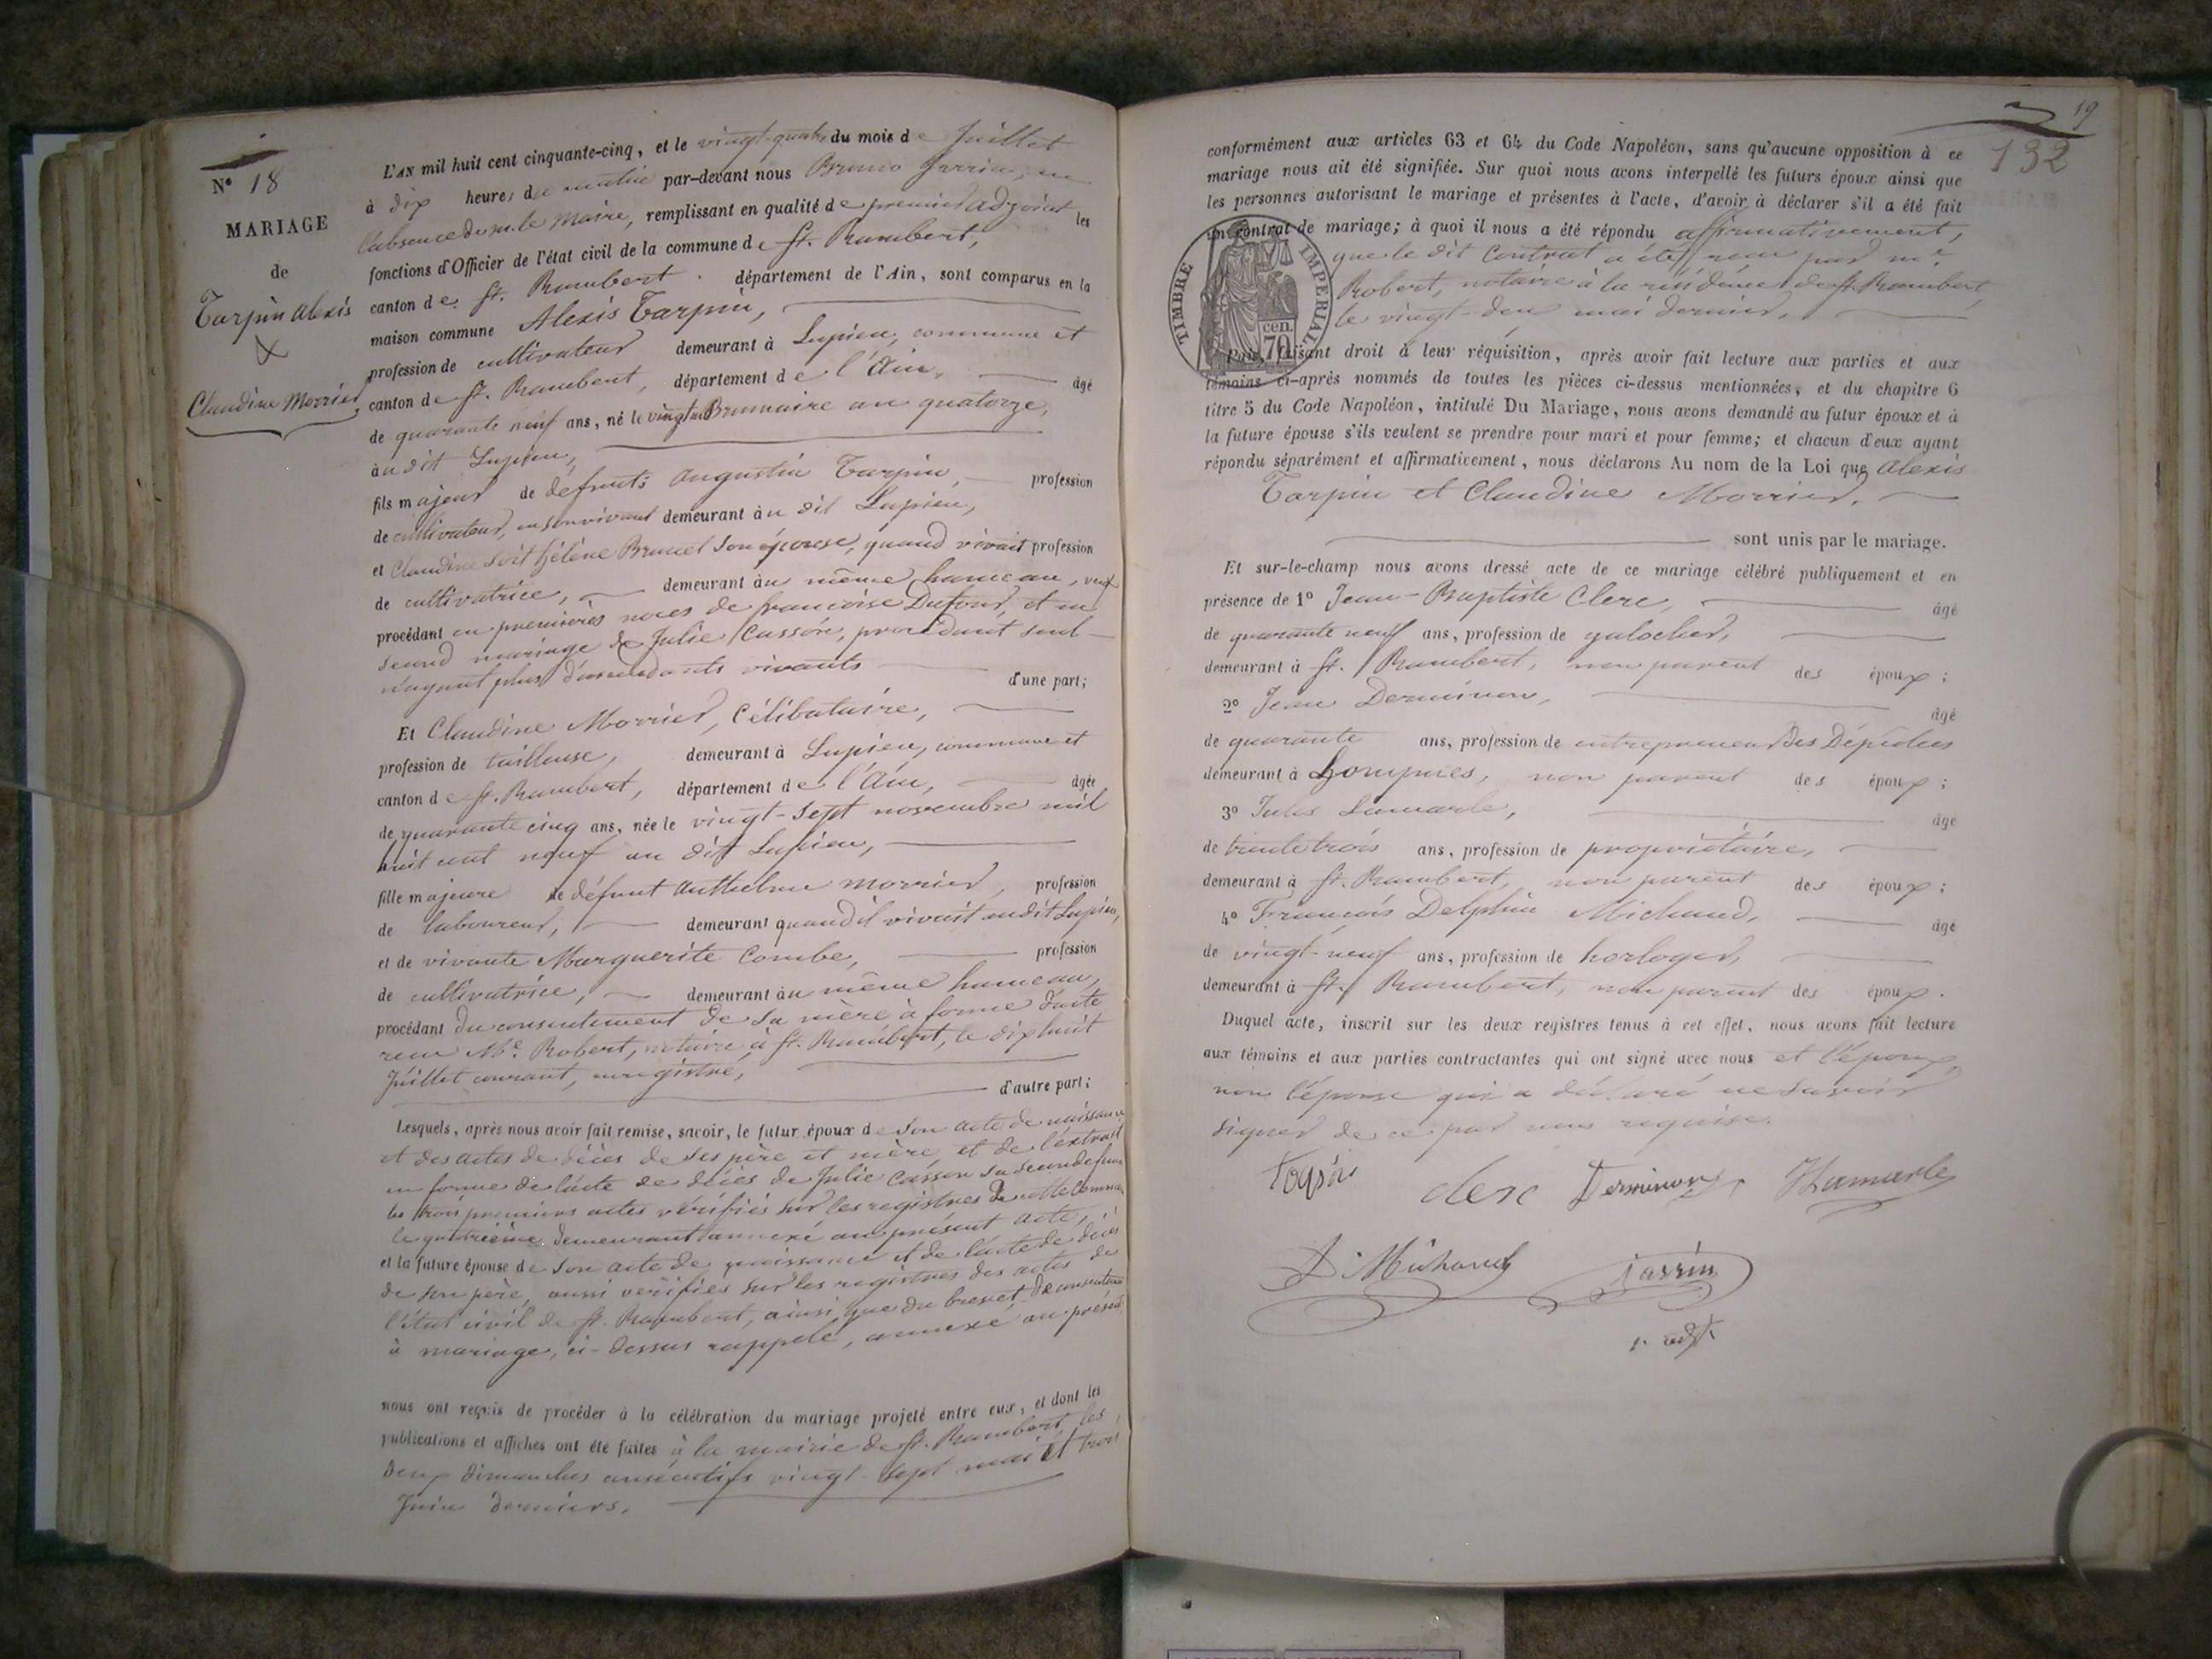 N° 18
MARIAGE
de
Tarpin Alexis
&
Claudine Morrier
L'AN mil huit cent cinquante-cinq, et le vingt-quatre du mois de Juillet
à dix heures du matin par-devant nous Bruno Jarrin, en
l'absence de m. le Maire, remplissant en qualité de premier adjoint les
fonctions d'Officier de l'état civil de la commune de St. Rambert,
canton de St. Rambert. département de l'Ain, sont comparus en la
maison commune Alexis Tarpin,
profession de cultivateur demeurant à Lupieu, commune et
canton de St. Rambert, département de l'Ain, âgé
de quarante neuf ans, né le vingt Brumaire an quatorze,
au dit Lupieu,
fils majeur de défunts Augustin Tarpin, profession
de cultivateur, en son vivant demeurant au dit Lupieu,
et Claudine soit hélène Brunel son épouse, quand vivait profession
de cultivatrice, demeurant au même hameau, veuf
procédant en premières noces de françoise Dufour, et en
second mariage de Julie Casson, procédant seul
n'ayant plus d'ascendants vivants d'une part;
Et Claudine Morrier, Célibataire,
profession de tailleuse, demeurant à Lupieu, commune et
canton de St. Rambert, département de l'Ain, âgée
de quarante cinq ans, née le vingt-sept novembre mil
huit cent neuf au dit Lupieu,
fille majeure de défunt Anthelme Morrier, profession
de laboureur, demeurant quand il vivait au dit Lupieu,
et de vivante Marguerite Combe, profession
de cultivatrice, demeurant au même hameau,
procédant du consentement de sa mère à forme d'acte
reçu Me. Robert, notaire à St. Rambert, le dix huit
Juillet courant, enregistré,
d'autre part;
Lesquels, après nous avoir fait remise, savoir, le futur époux de son acte de naissance
et des actes de décès de ses père et mère, et de l'extrait
en forme de l'acte de décès de Julie Casson sa seconde femme
les trois premiers actes vérifiés sur les registres de cette commune
le quatrième demeurant annexé au présent acte,
et la future épouse de son acte de naissance et de l'acte de décès
de son père, aussi vérifiés sur les registres des actes de
l'état civil de St. Rambert, ainsi que du brevet de consentement
à mariage, ci-dessus rappelé, annexé au présent
nous ont requis de procéder à la célébration du mariage projeté entre eux, et dont les
publications et affiches ont été faites à la mairie de St. Rambert, les
deux dimanches consécutifs vingt-sept mai et trois
Juin derniers,
19
132
conformément aux articles 63 et 64 du Code Napoléon, sans qu'aucune opposition à ce
mariage nous ait été signifiée. Sur quoi nous avons interpellé les futurs époux ainsi que
les personnes autorisant le mariage et présentes à l'acte, d'avoir à déclarer s'il a été fait
un contrat de mariage; à quoi il nous a été répondu affirmativement,
que le dit Contrat a été reçu par me.
Robert, notaire à la résidence de St. Rambert,
le vingt-deux mai dernier,
TIMBRE IMPERIAL
cen.
70
Puis, faisant droit à leur réquisition, après avoir fait lecture aux parties et aux
témoins ci-après nommés de toutes les pièces ci-dessus mentionnées, et du chapitre 6
titre 5 du Code Napoléon, intitulé Du Mariage, nous avons demandé au futur époux et à
la future épouse s'ils veulent se prendre pour mari et pour femme; et chacun d'eux ayant
répondu séparément et affirmativement, nous déclarons Au nom de la Loi que Alexis
Tarpin et Claudine Morrier,
sont unis par le mariage.
Et sur-le-champ nous avons dressé acte de ce mariage célébré publiquement et en
présence de 1° Jean-Baptiste Clerc, âgé
de quarante neuf ans, profession de galocher,
demeurant à St. Rambert, non parent des époux;
2° Jean Derminon, âgé
de quarante ans, profession de entrepreneur des Dépêches
demeurant à Hompnes, non parent des époux;
3° Jules Lamarle, âgé
de trente trois ans, profession de propriétaire,
demeurant à St. Rambert, non parent des époux;
4° François Delphin Michaud, âgé
de vingt-neuf ans, profession de horloger,
demeurant à St. Rambert, non parent des époux.
Duquel acte, inscrit sur les deux registres tenus à cet effet, nous avons fait lecture
aux témoins et aux parties contractantes qui ont signé avec nous et l'époux,
non l'épouse qui a déclaré ne savoir
signer de ce par nous requise.
Clerc Derminon JLamarle
D. Michaud Jarrin
1. adjt.